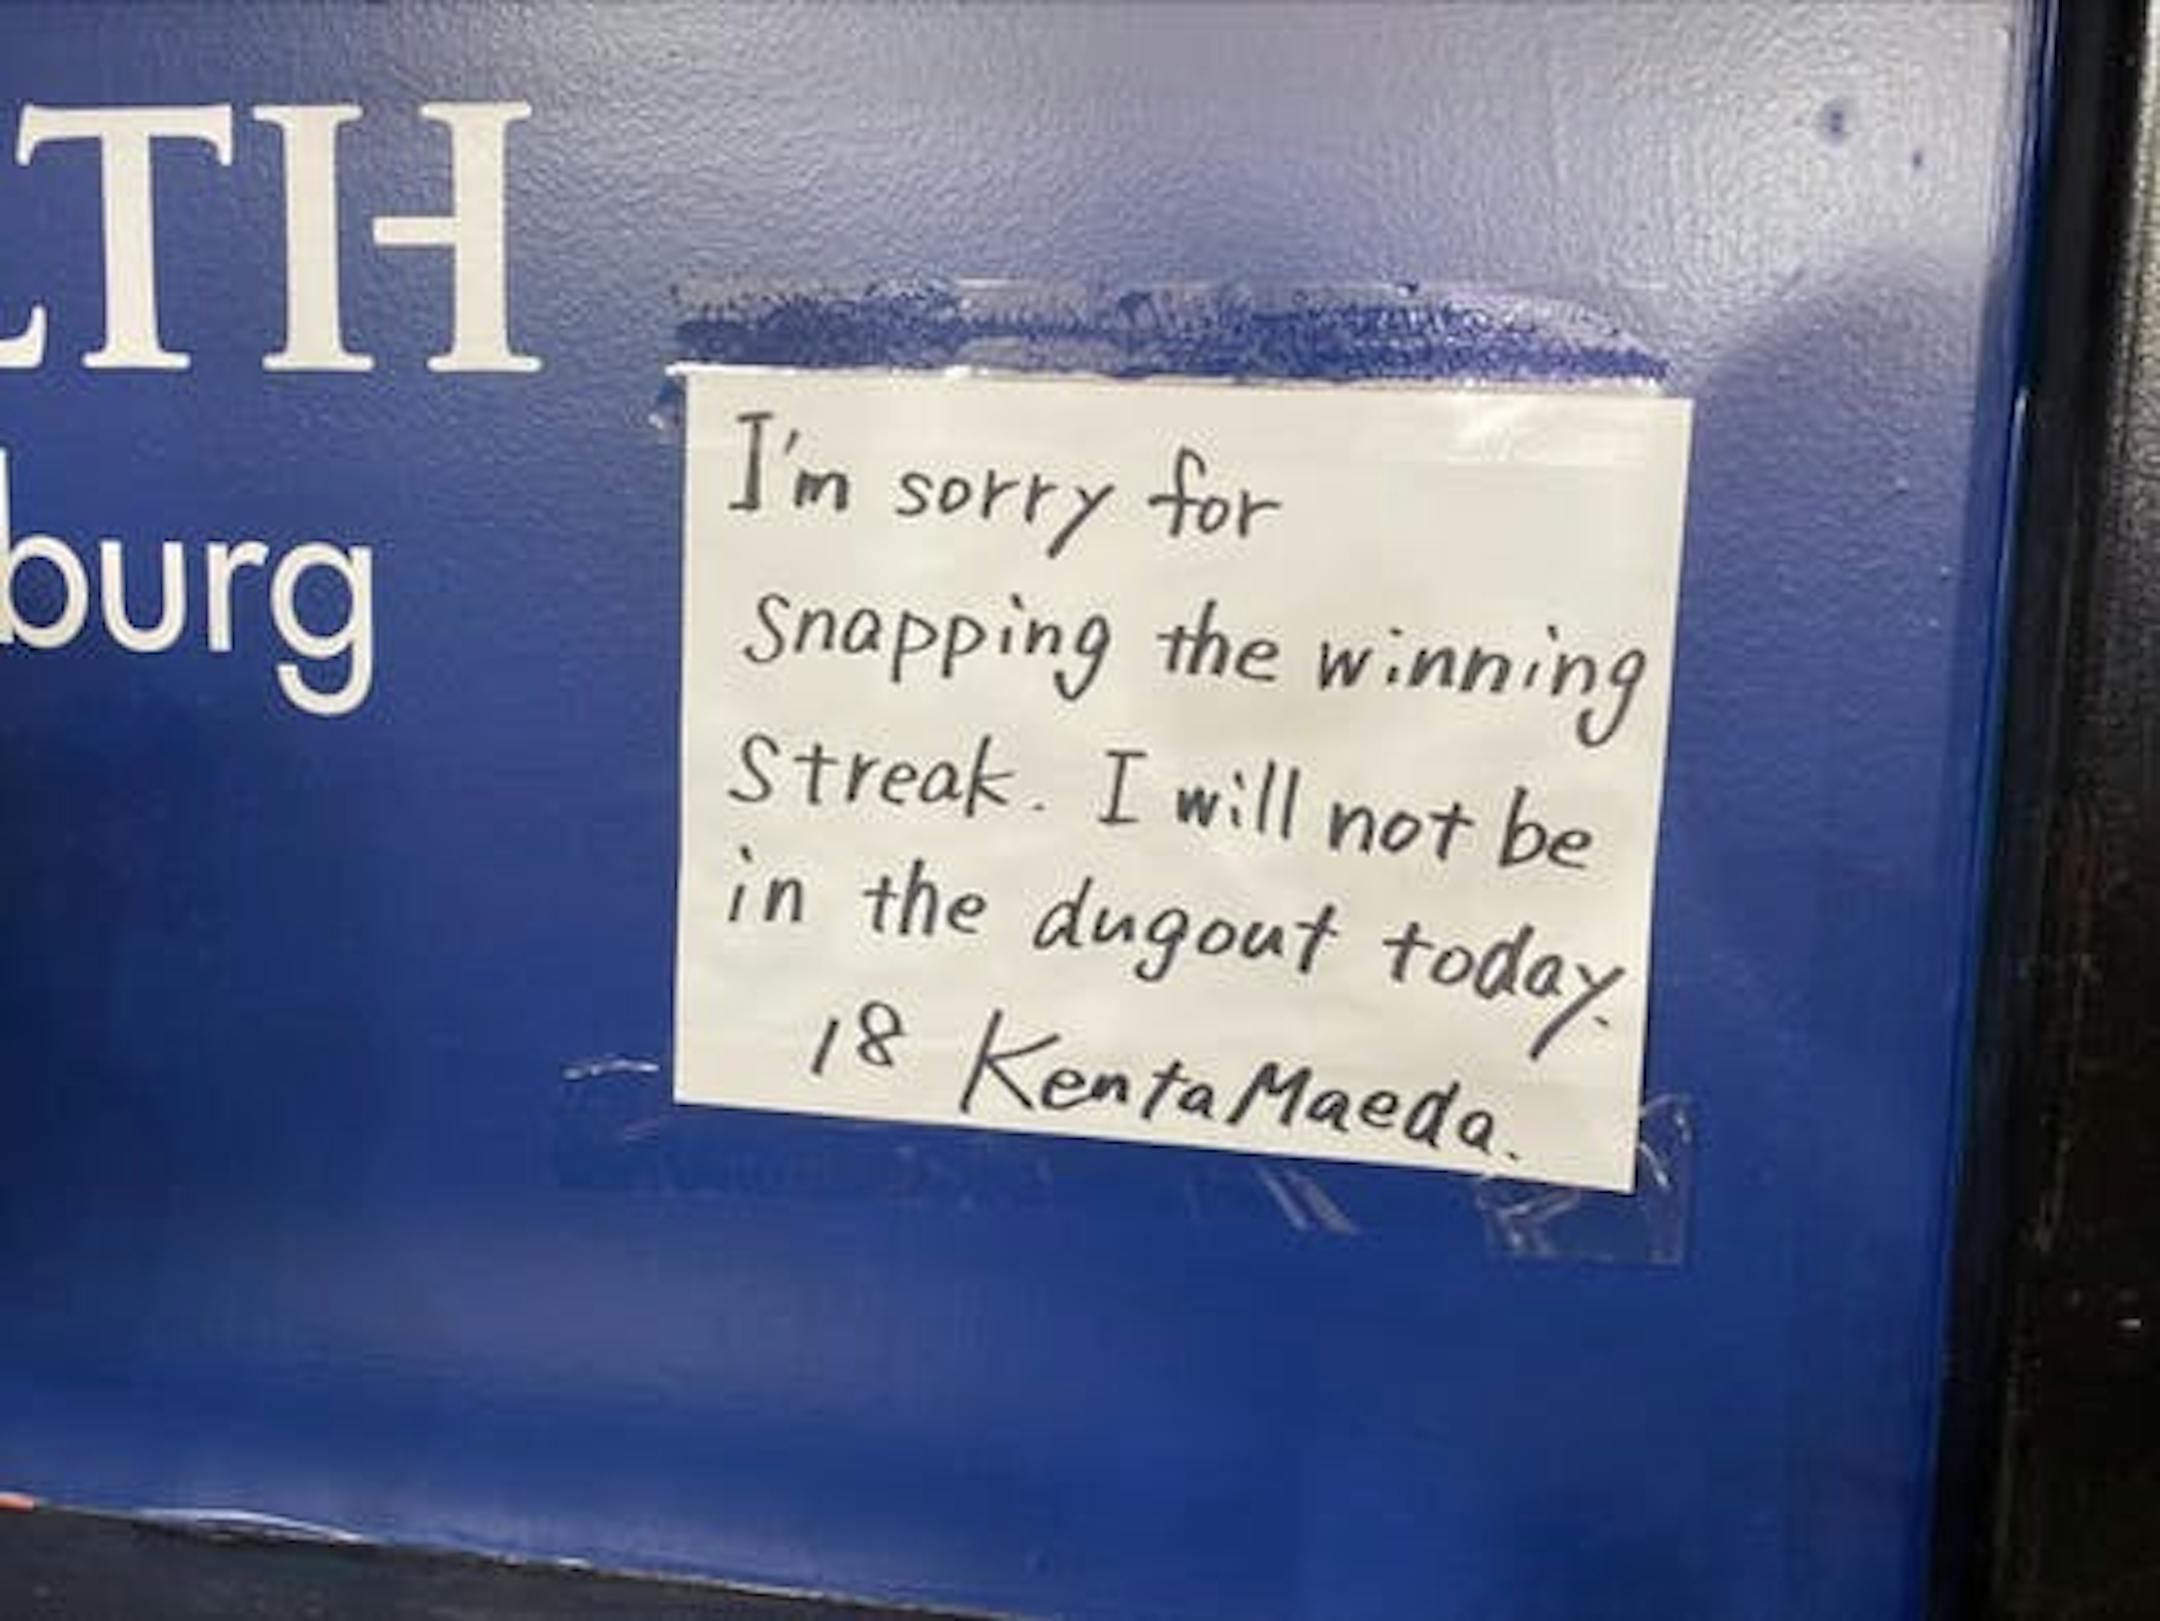 LTH
burg
I'm sorry for
snapping the winning
streak. I will not be
in the dugout today.
18 Kenta Maeda.